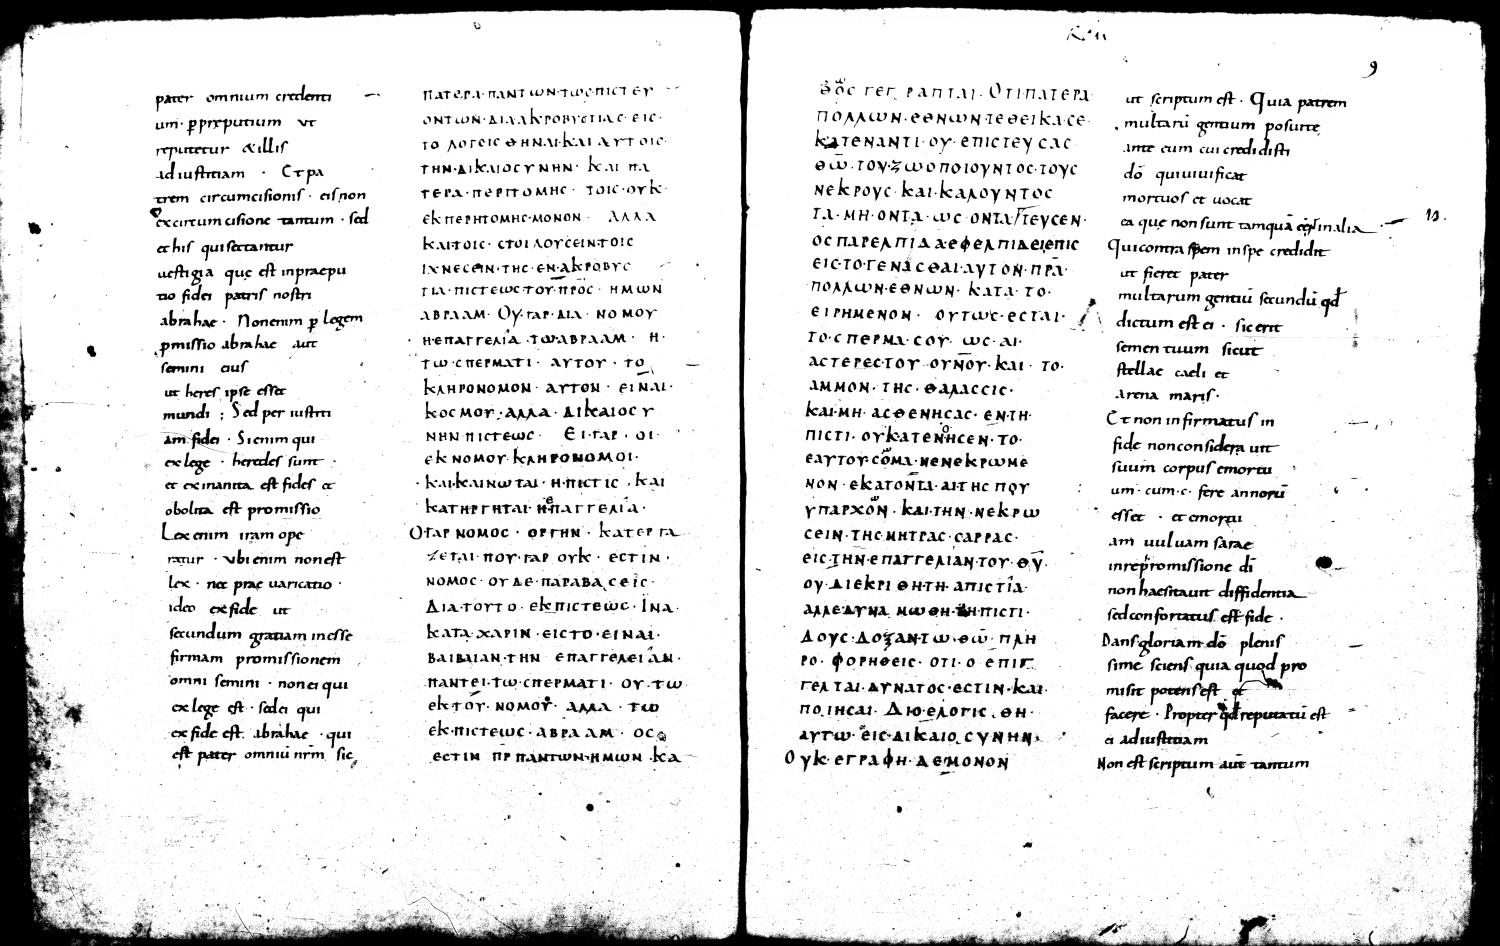 pater omnium credenti
um · p preputium ut
reputetur & illis
ad iustitiam · Et pa
trem circumcisionis · eis non
ex circum cisione tantum · sed
et his qui sectantur
uestigia quę est in praepu
tio fidei patris nostri
abrahae · Non enim p legem
pmissio abrahae aut
semini eius
ut heres ipse esset
mundi ; Sed per iustiti
am fidei · Si enim qui
ex lege · heredes sunt ·
et exinanita est fides et
obolita est promissio
Lex enim iram ope
ratur · ubi enim non est
lex · nec prae uaricatio ·
ideo ex fide ut
secundum gratiam in esse
firmam promissionem
omni semini · non ei qui
ex lege est · sed ei qui
ex fide est abrahae · qui
est pater omniū nr̄m sic
ΠΑΤΕΡΑ·ΠΑΝΤΩΝ·ΤΩΣ ΠΙΣΤΕΥ
ΟΝΤΩΝ·ΔΙΑ ΑΚΡΟΒΥΣΤΙΑΣ·ΕΙΣ·
ΤΟ ΛΟΓΕΙΣΘΗΝΑΙ·ΚΑΙ ΑΥΤΟΙΣ·
ΤΗΝ·ΔΙΚΑΙΟΣΥΝΗΝ· ΚΑΙ ΠΑ
ΤΕΡΑ·ΠΕΡΙΤΟΜΗΣ· ΤΟΙΣ·ΟΥΚ·
ΕΚ ΠΕΡΗΤΟΜΗΣ·ΜΟΝΟΝ· ΑΛΛΑ
ΚΑΙ·ΤΟΙΣ· ΣΤΟΙΛΟΥΣΕΙΝ·ΤΟΙΣ
ΙΧΝΕΣΕΙΝ·ΤΗΣ·ΕΝ·ΑΚΡΟΒΥΣ
ΤΙΑ·ΠΙΣΤΕΩΣ·ΤΟΥ·ΠΡ̄ΟΣ· ΗΜΩΝ
ΑΒΡΑΑΜ· ΟΥ·ΓΑΡ·ΔΙΑ· ΝΟΜΟΥ
Η·ΕΠΑΓΓΕΛΙΑ·ΤΩ·ΑΒΡΑΑΜ· Η·
ΤΩ·ΣΠΕΡΜΑΤΙ· ΑΥΤΟΥ· ΤΟ
ΚΛΗΡΟΝΟΜΟΝ· ΑΥΤΟΝ· ΕΙΝΑΙ·
ΚΟΣΜΟΥ·ΑΛΛΑ· ΔΙΚΑΙΟΣΥ
ΝΗΝ·ΠΙΣΤΕΩΣ· ΕΙ·ΓΑΡ· ΟΙ·
ΕΚ ΝΟΜΟΥ·ΚΛΗΡΟΝΟΜΟΙ·
ΚΑΙ·ΚΑΙΝΩΤΑΙ·Η·ΠΙΣΤΙΣ·ΚΑΙ
ΚΑΤΗΡΓΗΤΑΙ·Η·ΕΠΑΓΓΕΛΙΑ·
Ο ΓΑΡ ΝΟΜΟΣ· ΟΡΓΗΝ· ΚΑΤΕΡΓΑ
ΖΕΤΑΙ·ΠΟΥ·ΓΑΡ ΟΥΚ· ΕΣΤΙΝ·
ΝΟΜΟΣ·ΟΥΔΕ·ΠΑΡΑΒΑΣΕΙΣ·
ΔΙΑ·ΤΟΥΤΟ·ΕΚ ΠΙΣΤΕΩΣ·ΙΝΑ·
ΚΑΤΑ·ΧΑΡΙΝ·ΕΙΣ ΤΟ·ΕΙΝΑΙ·
ΒΑΙΒΑΙΑΝ·ΤΗΝ ΕΠΑΓΓΕΛΕΙΑΝ·
ΠΑΝΤΕΙ·ΤΩ·ΣΠΕΡΜΑΤΙ· ΟΥ·ΤΩ
ΕΚ·ΤΟΥ·ΝΟΜΟΥ· ΑΛΛΑ·ΤΩ
ΕΚ·ΠΙΣΤΕΩΣ·ΑΒΡΑΑΜ· ΟΣ
ΕΣΤΙΝ Π̄Ρ̄ ΠΑΝΤΩΝ·ΗΜΩΝ·ΚΑ
9
ΓΕΓΡΑΠΤΑΙ· ΟΤΙ ΠΑΤΕΡΑ·
ΠΟΛΛΩΝ·ΕΘΝΩΝ·ΤΕΘΕΙΚΑ·ΣΕ·
ΚΑΤΕΝΑΝΤΙ·ΟΥ·ΕΠΙΣΤΕΥΣΑΣ
Θ̄Ω̄·ΤΟΥ·ΖΩΟΠΟΙΟΥΝΤΟΣ·ΤΟΥΣ
ΝΕΚΡΟΥΣ·ΚΑΙ·ΚΑΛΟΥΝΤΟΣ
ΤΑ·ΜΗ·ΟΝΤΑ·ΩΣ·ΟΝΤΑ/ΤΕΥΣΕΝ·
ΟΣ ΠΑΡΕΛΠΙΔΑ·ΕΦΕΛΠΙΔΕΙ·ΕΠΙΣ
ΕΙΣ·ΤΟ·ΓΕΝΑΣΘΑΙ·ΑΥΤΟΝ·Π̄Ρ̄Α·
ΠΟΛΛΩΝ·ΕΘΝΩΝ· ΚΑΤΑ·ΤΟ·
ΕΙΡΗΜΕΝΟΝ· ΟΥΤΩΣ·ΕΣΤΑΙ·
ΤΟ·ΣΠΕΡΜΑ·ΣΟΥ· ΩΣ·ΑΙ·
ΑΣΤΕΡΕΣ·ΤΟΥ ΟΥΝ̄ΟΥ·ΚΑΙ·ΤΟ·
ΑΜΜΟΝ·ΤΗΣ·ΘΑΛΑΣΣΙΣ·
ΚΑΙ·ΜΗ·ΑΣΘΕΝΗΣΑΣ·ΕΝ·ΤΗ·
ΠΙΣΤΙ·ΟΥ ΚΑΤΕΝΟΗΣΕΝ·ΤΟ·
ΕΑΥΤΟΥ·ΣΩΜΑ·ΝΕΝΕΚΡΩΜΕ
ΝΟΝ·ΕΚΑΤΟΝΤΑ·ΑΙΤΗΣ ΠΟΥ
ΥΠΑΡΧΩΝ·ΚΑΙ·ΤΗΝ·ΝΕΚΡΩ
ΣΕΙΝ·ΤΗΣ·ΜΗΤΡΑΣ·ΣΑΡΡΑΣ·
ΕΙΣ·ΤΗΝ·ΕΠΑΓΓΕΛΙΑΝ·ΤΟΥ·Θ̄Ῡ·
ΟΥ·ΔΙΕΚΡΙΘΗ·ΤΗ·ΑΠΙΣΤΙΑ·
ΑΛΛΕΔΥΝΑΜΩΘΗ·ΤΗ·ΠΙΣΤΙ·
ΔΟΥΣ·ΔΟΞΑΝ·ΤΩ·Θ̄Ω̄·ΠΛΗ
ΡΟ·ΦΟΡΗΘΕΙΣ·ΟΤΙ·Ο ΕΠΙΓ
ΓΕΛΤΑΙ·ΔΥΝΑΤΟΣ·ΕΣΤΙΝ·ΚΑΙ·
ΠΟΙΗΣΑΙ· ΔΙΟ·ΕΛΟΓΙΣΘΗ·
ΑΥΤΩ·ΕΙΣ·ΔΙΚΑΙΟΣΥΝΗΝ·
ΟΥΚ·ΕΓΡΑΦΗ·ΔΕ·ΜΟΝΟΝ
ut scriptum est · Quia patrem
multarū gentium posui te
ante eum cui credidisti
dō qui uiuificat
mortuos et uocat
ea quę non sunt tamquā
Qui contra spem in spe credidit
ut fieret pater
multarum gentiū secundū qd
dictum est ei · sic erit
semen tuum sicut
stellae caeli et
arena maris ·
Et non infirmatus in
fide non considera uit
suum corpus emortu
um · cum · c · fere annorū
esset · et emortu
am uuluam sarae
in repromissione dī
non haesitauit diffidentia
sed confortatus est fide ·
Dans gloriam dō plenis
sime sciens quia quod pro
misit potens est et
facere · Propter qd reputatū est
ei ad iustitiam
Non est scriptum autē tantum